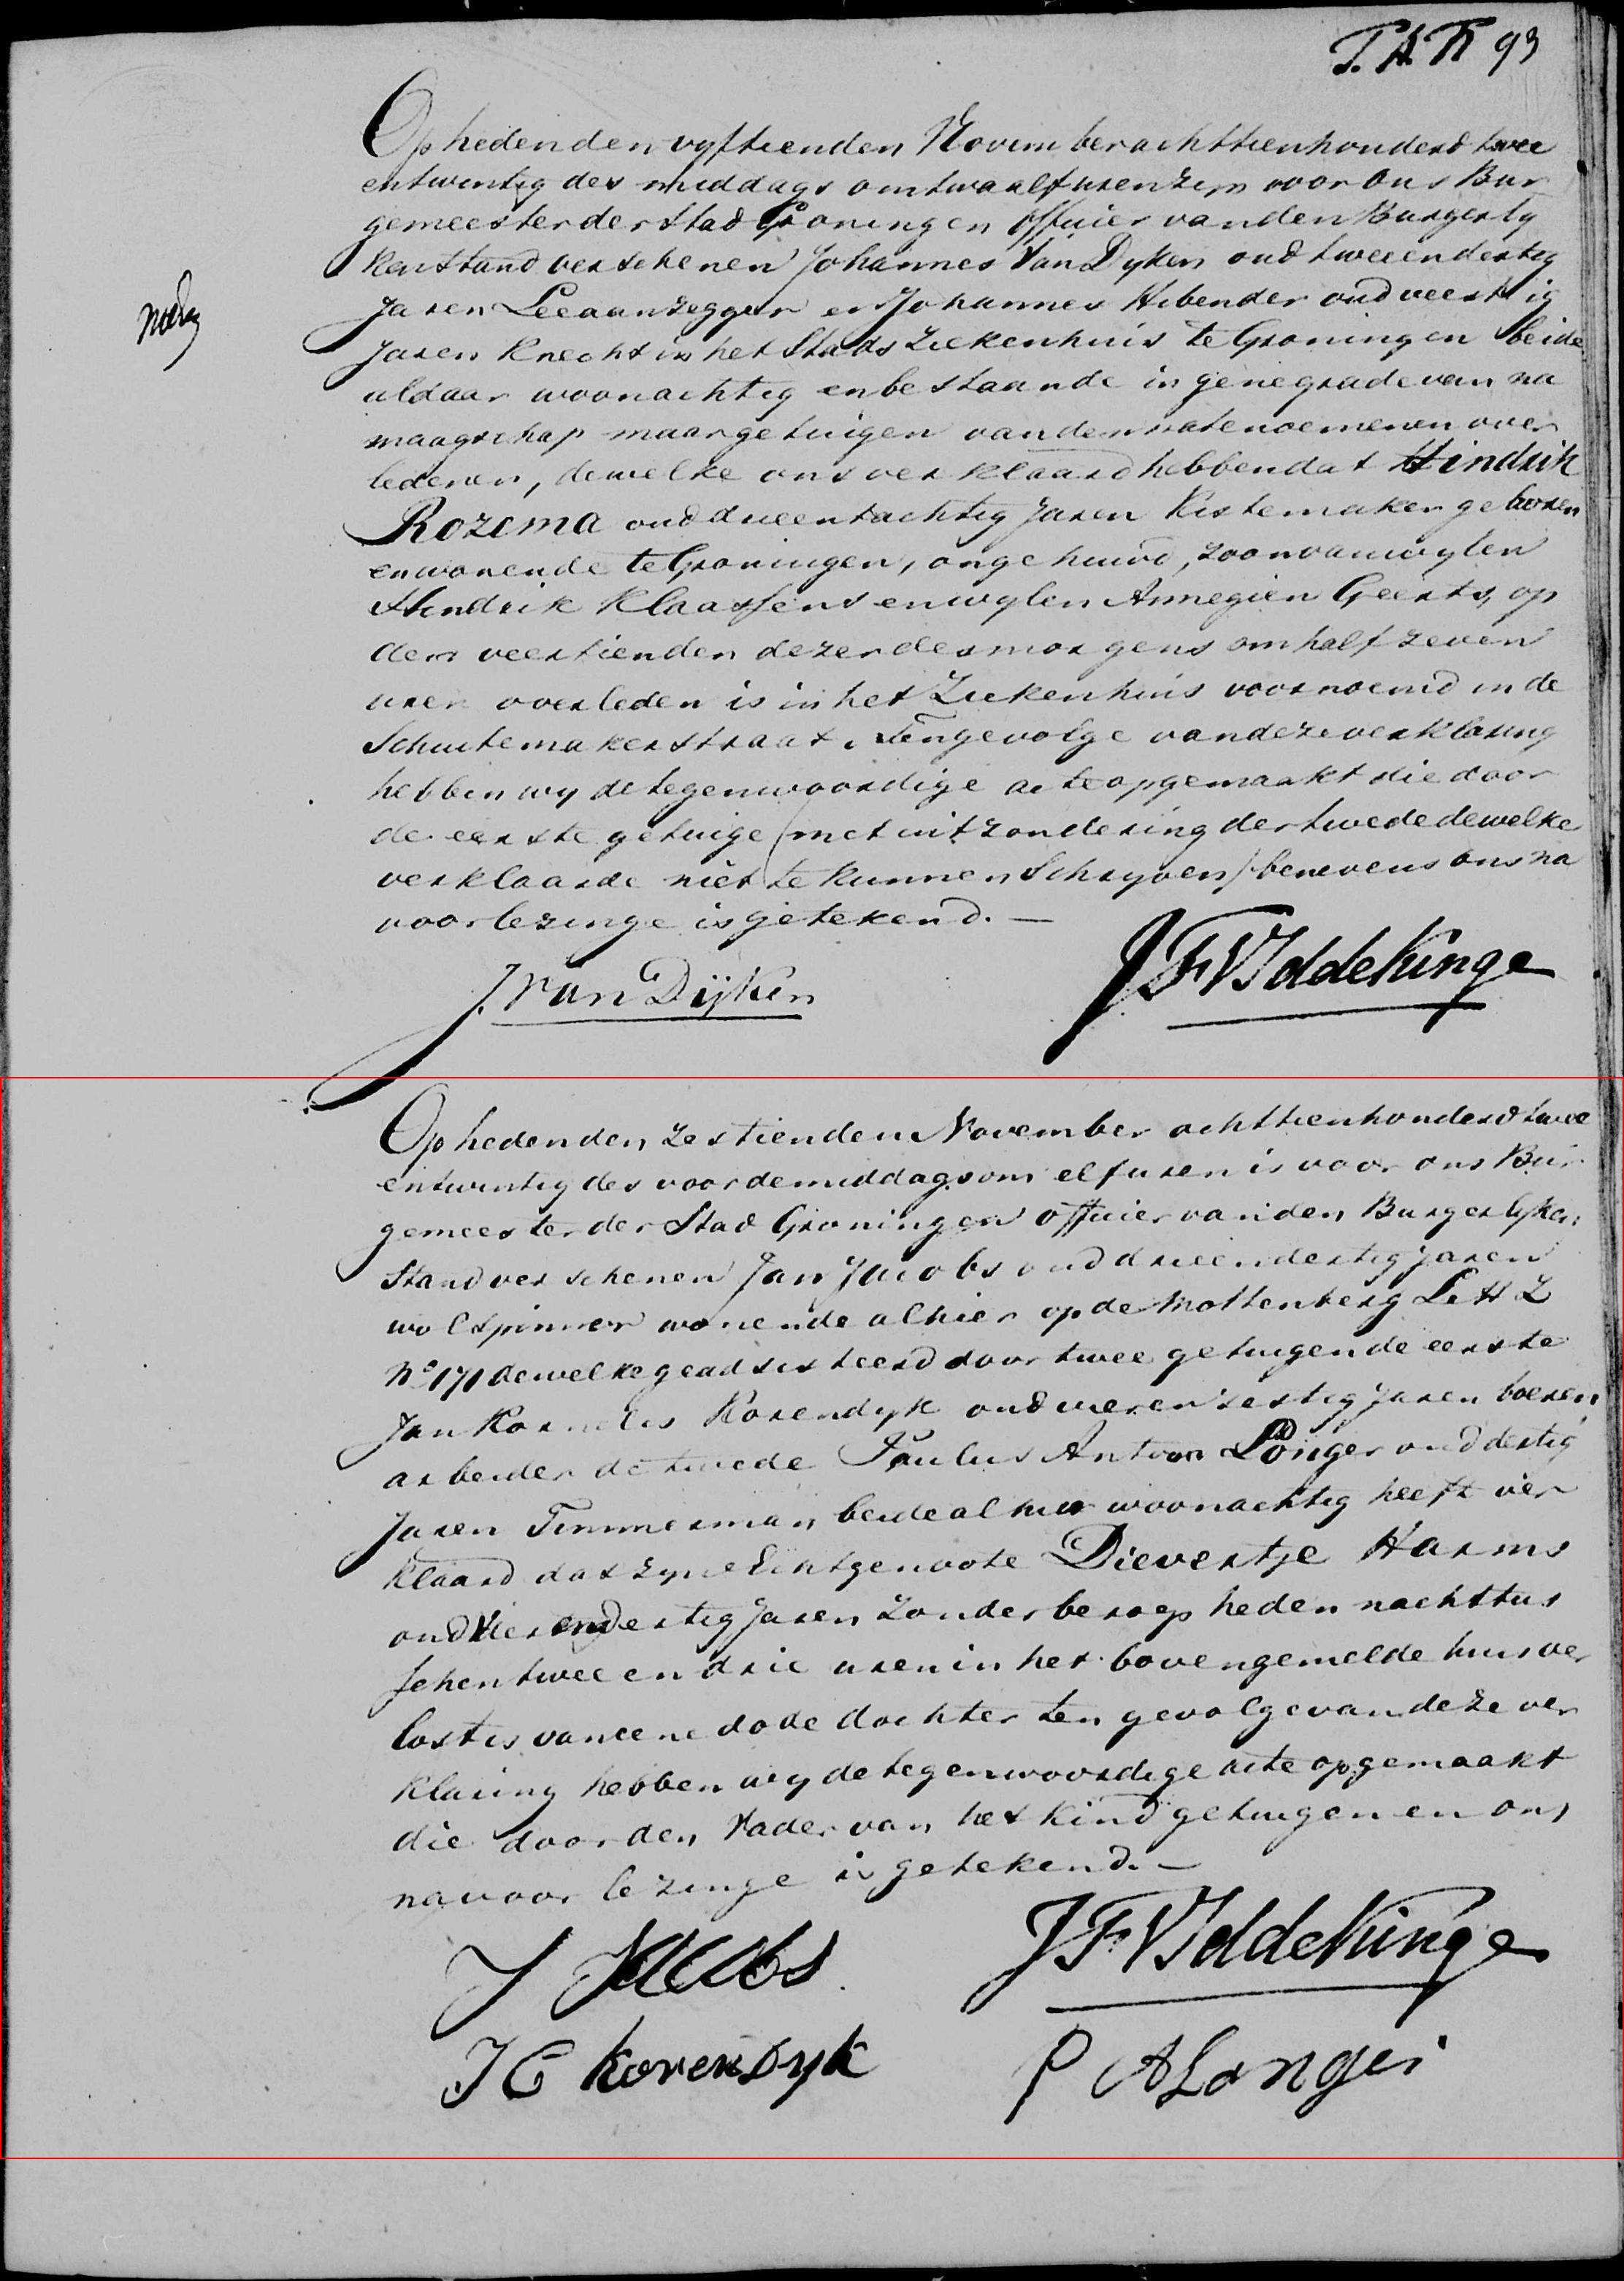 T.A.R 93
Op heden den vyftienden Novem ber achttienhonderd twee
entwintig des middags om twaalf uren zijn voor ons Bur
gemeester der Stad Groningen officier van den Burgerly
ken Stand verschenen Johannes Van Dyken oud tweeendertig
Jaren Leeaanzegger en Johannes Hibender oud veertig
Jaren Knecht in het Stads Ziekenhuis te Groningen beide
aldaar woonachtig en bestaande in gene grade van na
maagschap maar getuigen van den nate noemenen over
ledenen, dewelke ons verklaard hebben dat Hindrik
Rozema oud drieentachtig Jaren Kistemaker geboren
en wonende te Groningen, ongehuwd, zoon van wylen
Hendrik Klaassens en wylen Annegien Geerts, op
den veertienden dezer des morgens om half zeven
uren overleden is in het Ziekenhuis voornoemd in de
Schuitemakerstraat. Tengevolge van deze verklaring
hebben wy de tegenwoordige acte opgemaakt die door
de eerste getuige (met uitzondering der twede dewelke
verklaarde niet te kunnen Schryven) benevens ons na
voorlezinge is getekend. —
J. van Dijken
JFVIddekinge
Op heden den zestienden November achttienhonderd twee
entwintig des voordemiddags om elf uren is voor ons Bur
gemeester der Stad Groningen officier van den Burgerlyken
Stand verschenen Jan Jacobs oud drieendertig jaren
wolspinner wonende alhier op de Mottenberg Lett Z
No 171 dewelke geadsisteerd door twee getuigen de eerste
Jan Kornelis Korendyk oud vierenzestig jaren boeren
arbeider de twede Paulus Antoon Longer oud dertig
Jaren Timmerman beide alhier woonachtig heeft ver
klaard dat zyne Echtgenoote Dievertje Harms
oud vierendertig Jaren zonder beroep heden nacht tus
schen twee en drie uren in het bovengemelde huis ver
lost is van eene dode dochter ten gevolge van deze ver
klaring hebben wy de tegenwoordige acte opgemaakt
die door den vader van het kind getuigen en ons
na voorlezinge is getekend. —
J Jacobs
JFVIddekinge
J C Korendyk
P A Longer